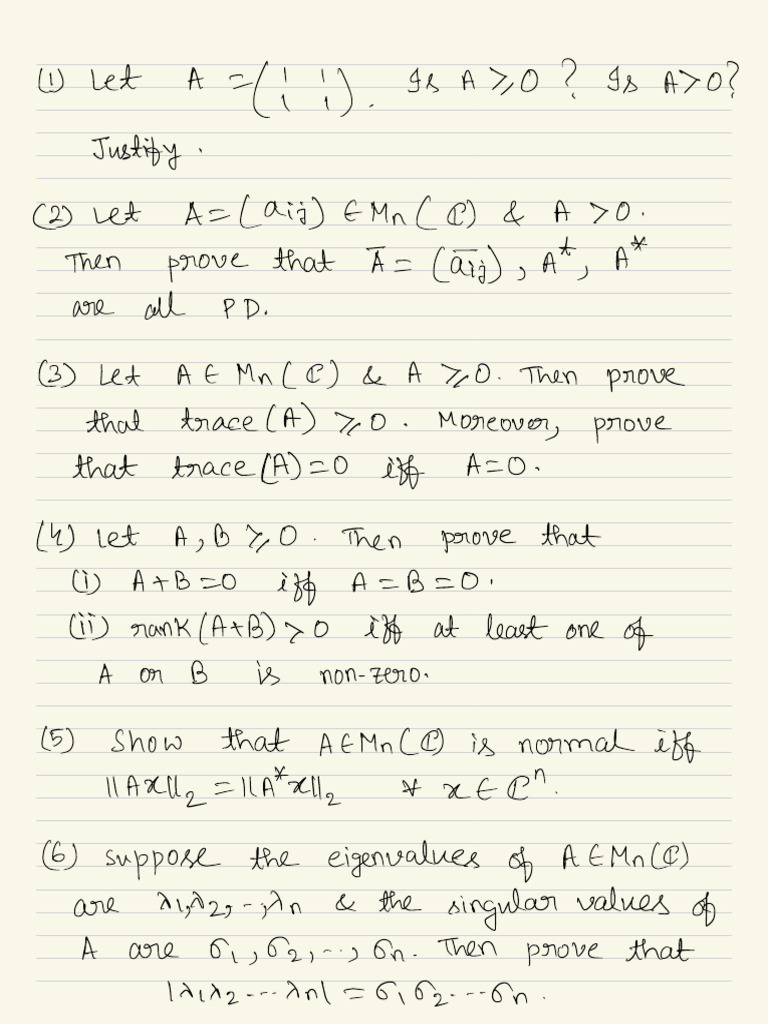 (1) Let A = (1 1
1 1). Is A ⩾ 0 ? Is A > 0 ?
Justify.
(2) Let A = (aij) ∈ Mn(ℂ) & A > 0.
Then prove that A̅ = (a̅ij), Aᵗ, A*
are all PD.
(3) Let A ∈ Mn(ℂ) & A ⩾ 0. Then prove
that trace(A) ⩾ 0. Moreover, prove
that trace(A) = 0 iff A = 0.
(4) Let A, B ⩾ 0. Then prove that
(i) A+B = 0 iff A = B = 0.
(ii) rank(A+B) > 0 iff at least one of
A or B is non-zero.
(5) Show that A ∈ Mn(ℂ) is normal iff
||Ax||₂ = ||A*x||₂ ∀ x ∈ ℂⁿ.
(6) Suppose the eigenvalues of A ∈ Mn(ℂ)
are λ₁, λ₂, --, λn & the singular values of
A are σ₁, σ₂, --, σn. Then prove that
|λ₁λ₂ --- λn| = σ₁σ₂ --- σn.